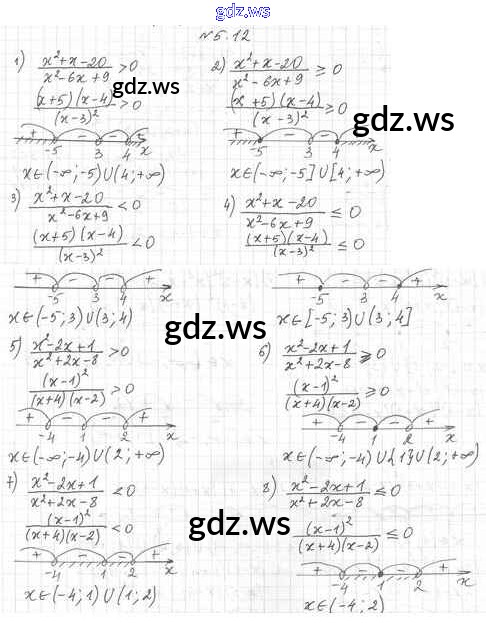 www.gdz.ws
№5.12
1) (x²+x-20)/(x²-6x+9) > 0
((x+5)(x-4))/(x-3)² > 0
+ - - +
-5 3 4 x
x∈(-∞;-5)∪(4;+∞)
2) (x²+x-20)/(x²-6x+9) ≥ 0
((x+5)(x-4))/(x-3)² ≥ 0
+ - - +
-5 3 4 x
x∈(-∞;-5]∪[4;+∞)
3) (x²+x-20)/(x²-6x+9) < 0
((x+5)(x-4))/(x-3)² < 0
+ - - +
-5 3 4 x
x∈(-5;3)∪(3;4)
4) (x²+x-20)/(x²-6x+9) ≤ 0
((x+5)(x-4))/(x-3)² ≤ 0
+ - - +
-5 3 4 x
x∈[-5;3)∪(3;4]
5) (x²-2x+1)/(x²+2x-8) > 0
(x-1)²/((x+4)(x-2)) > 0
+ - - +
-4 1 2 x
x∈(-∞;-4)∪(2;+∞)
6) (x²-2x+1)/(x²+2x-8) ≥ 0
(x-1)²/((x+4)(x-2)) ≥ 0
+ - - +
-4 1 2 x
x∈(-∞;-4)∪{1}∪(2;+∞)
7) (x²-2x+1)/(x²+2x-8) < 0
(x-1)²/((x+4)(x-2)) < 0
+ - - +
-4 1 2 x
x∈(-4;1)∪(1;2)
8) (x²-2x+1)/(x²+2x-8) ≤ 0
(x-1)²/((x+4)(x-2)) ≤ 0
+ - - +
-4 1 2 x
x∈(-4;2)
gdz.ws
gdz.ws
gdz.ws
gdz.ws
gdz.ws
gdz.ws